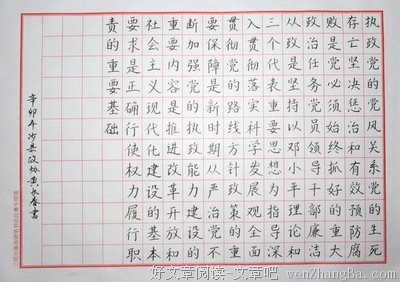 执政党的党风关系党的生死
存亡坚决惩治和有效预防腐
败是党必须始终抓好的重大
政治任务党员领导干部廉洁
从政是坚持以邓小平理论和
三个代表重要思想为指导深
入贯彻落实科学发展观全面
贯彻党的路线方针政策的重
要保障是新时期从严治党不
断加强党的执政能力建设的
重要内容是推进改革开放和
社会主义现代化建设的基本
要求是正确行使权力履行职
责的重要基础
辛卯年沙县政协黄长春书
好文章阅读-文章吧
wenZhangBa.com